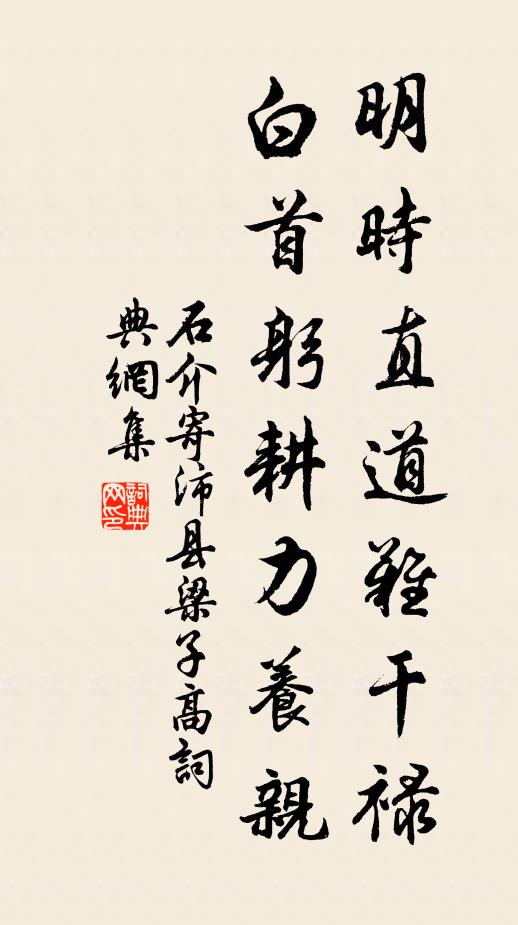 明時直道難干禄
白首躬耕力養親
石介寄沛县梁子高詞
典網集
詞典网印